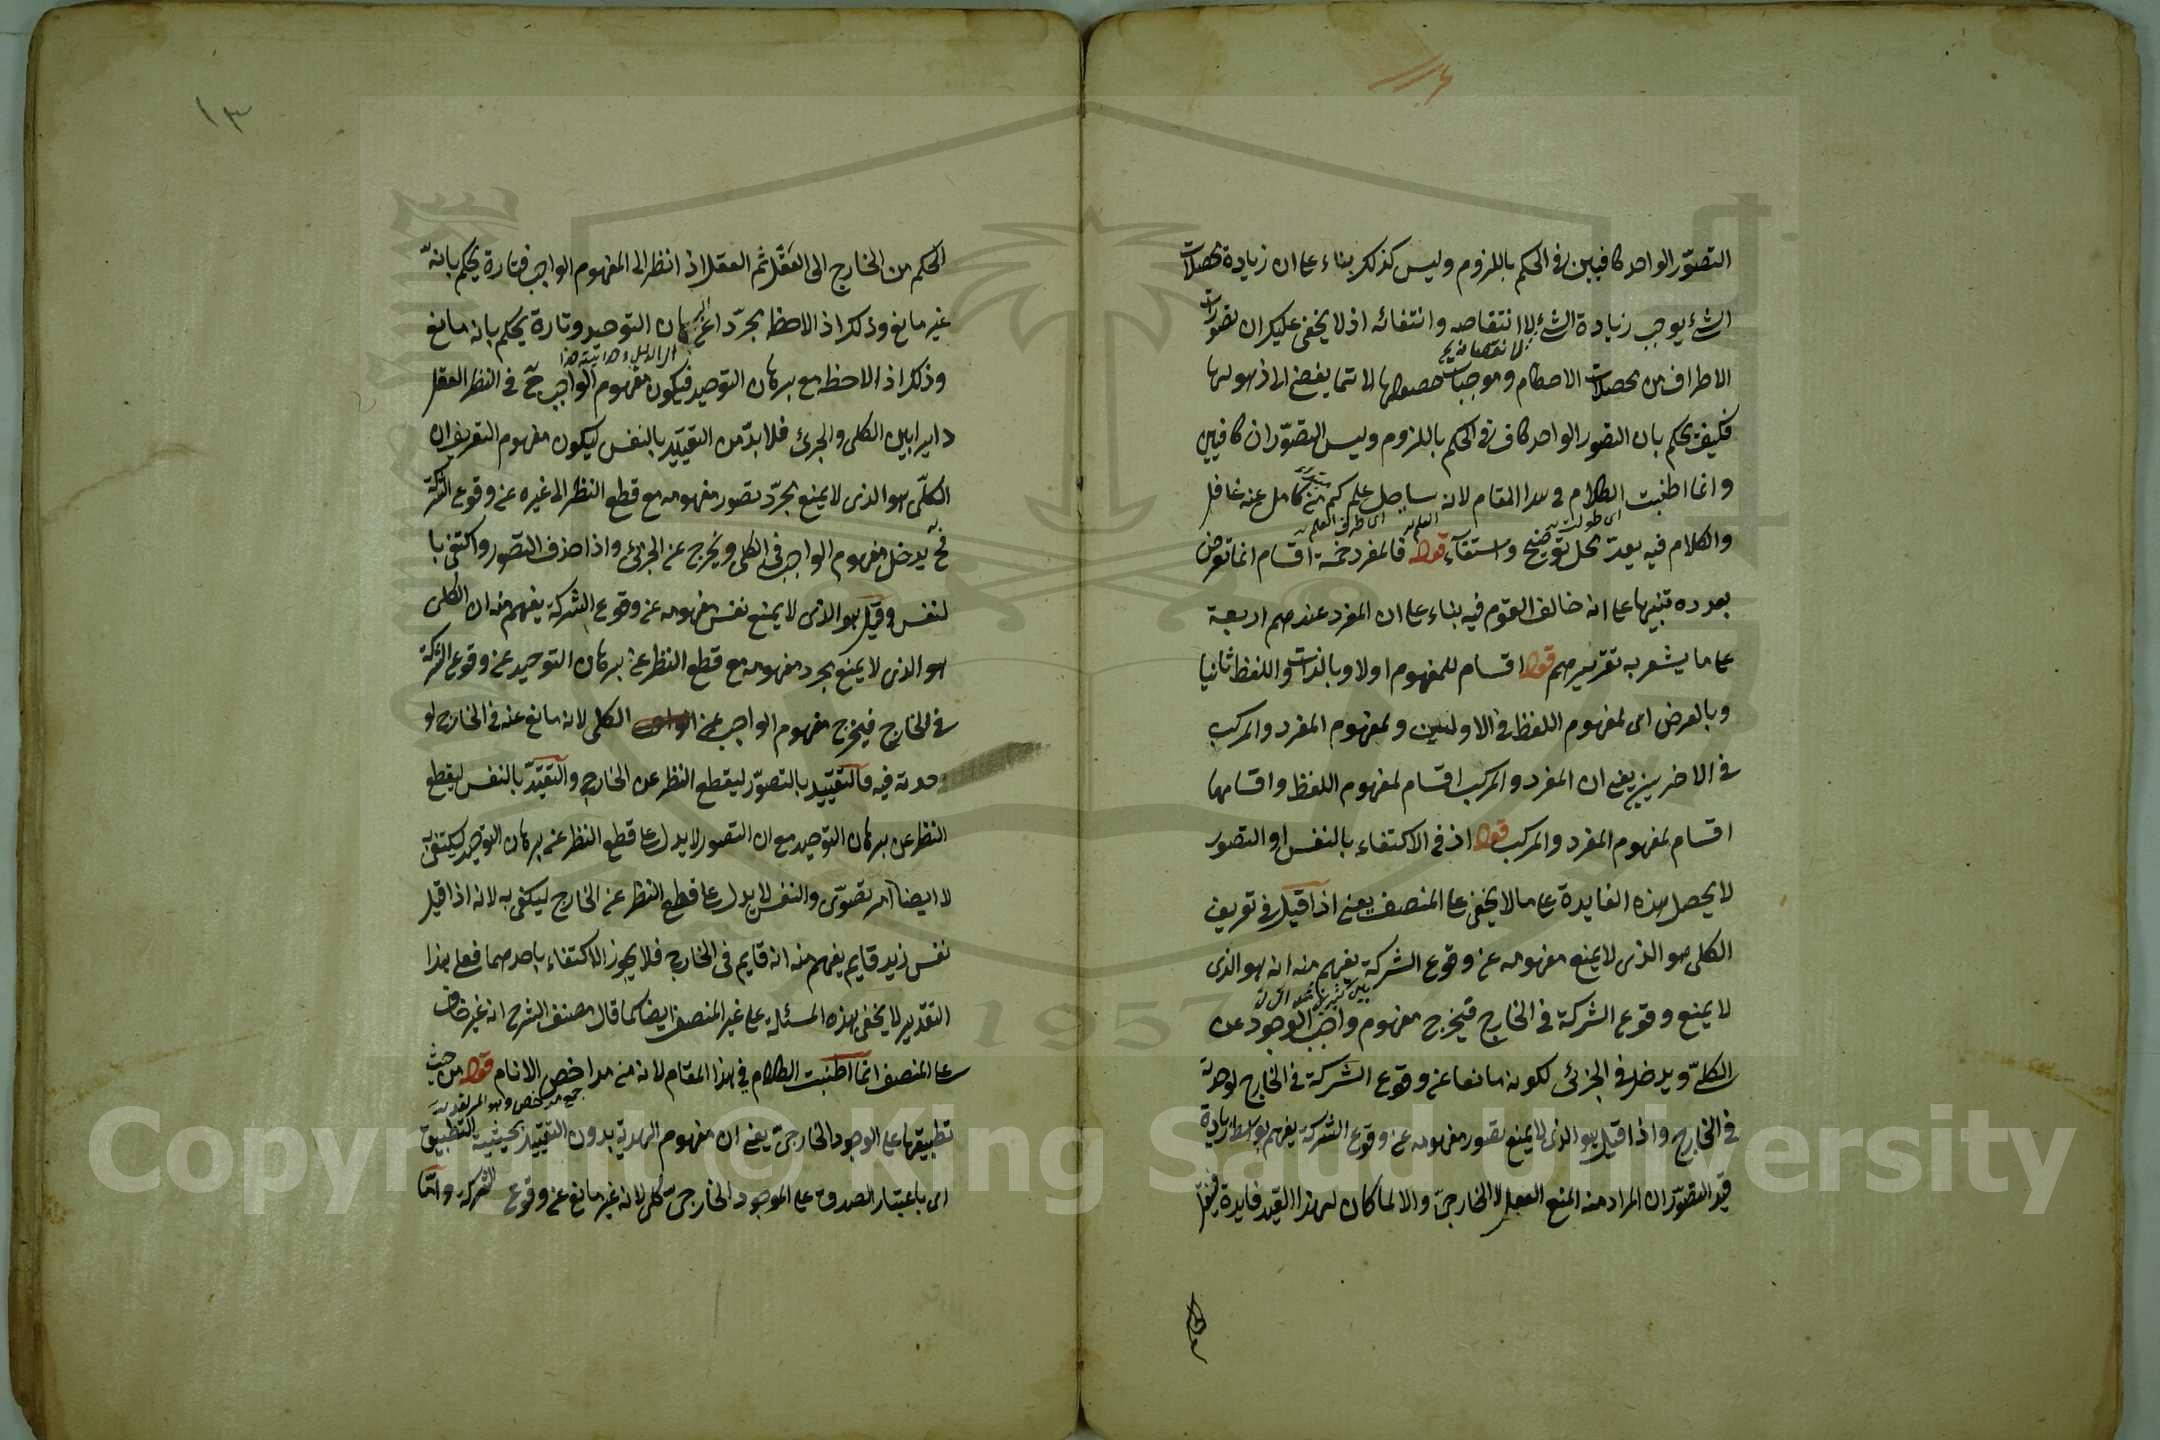 التصوّر الواحد كافيين في الحكم باللزوم وليس كذلك بناء على ان زيادة محصلات
الشئ يوجب زيادة الشئ لا انتقاصه وانتفائه اذ لا يخفى عليك ان تصورات
الاطراف من محصلات الاحكام وموجبات حصولها لا مما يفضي الى ذهولها
فكيف يحكم بان التصور الواحد كاف في الحكم باللزوم وليس التصوّران كافيين
وانما اطنبت الكلام في هذا المقام لانه ساحل علم كم من كامل عنه غافل
والكلام فيه يعدّ محل توضيح واستقآء قوله فالمفرد خمسة اقسام انما تعرض
بعدده تنبيها على انه خالف القوم فيه بناء على ان المفرد عندهم اربعة
على ما يشعر به تقريرهم قوله اقسام للمفهوم اولا وبالذات واللفظ ثانيا
وبالعرض اى لمفهوم اللفظ في الاولين ولمفهوم المفرد والمركب
في الاخريين يعنى ان المفرد والمركب اقسام لمفهوم اللفظ واقسامهما
اقسام لمفهوم المفرد والمركب قوله اذ في الاكتفاء بالنفس او التصور
لا يحصل هذه الفايدة على ما لا يخفى على المنصف يعنى اذا قيل في تعريف
الكلى هو الذى لا يمنع مفهومه عن وقوع الشركة يفهم منه انه هو الذى
لا يمنع وقوع الشركة في الخارج فيخرج مفهوم واجب الوجود عن
الكلىّ ويدخل في الجزئى لكونه مانعا عن وقوع الشركة في الخارج لوحدته
في الخارج واذا قيل هو الذى لا يمنع تصور مفهومه عن وقوع الشركة يفهم بواسطة زيادة
قيد التصوّر ان المراد منه المنع العقلى لا الخارجىّ والا لما كان لهذا القيد فايدة
الحكم من الخارج الى العقل ثم العقل اذا نظر الى المفهوم الواجب فتارة يحكم بانه
غير مانع وذلك اذا لاحظه مجرّدا عن برهان التوحيد وتارة يحكم بانه مانع
وذلك اذا لاحظه مع برهان التوحيد فيكون مفهوم الواجب ح في النظر العقل
دايرا بين الكلى والجزئ فلا بدّ من التقييد بالنفس ليكون مفهوم التعريف ان
الكلىّ هو الذى لا يمنع مجرّد تصور مفهومه مع قطع النظر الى غيره عن وقوع الشركة
فح يدخل مفهوم الواجب في الكلى ويخرج عن الجزئى واذا حذف التصور واكتفى با
لنفس وقيل هو الذى لا يمنع نفس مفهومه عن وقوع الشركة يفهم منه ان الكلى
هو الذى لا يمنع مجرد مفهومه مع قطع النظر عن برهان التوحيد عن وقوع الشركة
في الخارج فيخرج مفهوم الواجب عن الكلى لانه مانع عنه في الخارج لو
حدته فيه فالتقييد بالتصوّر ليقطع النظر عن الخارج والتقيّد بالنفس ليقطع
النظر عن برهان التوحيد مع ان التصور لا يدل على قطع النظر عن برهان التوحيد ليكتفى به
لا ايضا امر تصوّرى والنفس لا يدل على قطع النظر عن الخارج ليكتفى به لانه اذا قيل
نفس زيد قايم يفهم منه انه قايم في الخارج فلا يجوز الاكتفاء باحدهما فعلى هذا
التقدير لا يخفى هذه المسئلة على غير المنصف ايضا كما قال مصنف الشرح انه غير خاف
على المنصف انما اطنبت الكلام في هذا المقام لانه من مداحض الانام قوله من حيث
تطبيقها على الوجود الخارجىّ يعنى ان مفهوم الهذية بدون التقييد بحيثية التطبيق
اى باعتبار الصدق على الموجود الخارجىّ كلى لانه غير مانع عن وقوع الشركة وامّا
١٣